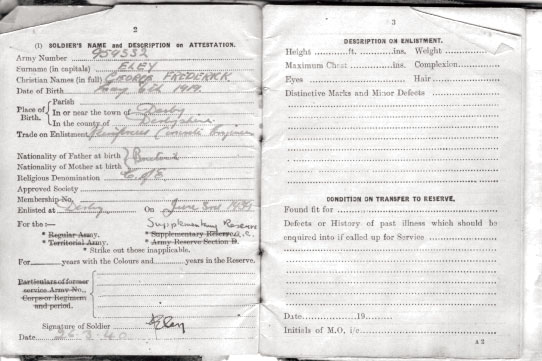 2
(1) SOLDIER'S NAME and DESCRIPTION on ATTESTATION.
Army Number 959332
Surname (in capitals) ELEY
Christian Names (in full) GEORGE FREDERICK
Date of Birth May 6th 1919.
Place of Birth.
Parish
In or near the town of Derby
In the county of Derbyshire
Trade on Enlistment Reinforced Concrete Engineer
Nationality of Father at birth
Nationality of Mother at birth
Religious Denomination C of E
Approved Society
Membership No.
Enlisted at Derby On June 2nd 1939
For the :— Supplementary Reserve
* Regular Army. * Supplementary Reserve.
* Territorial Army. * Army Reserve Section D.
* Strike out those inapplicable.
For years with the Colours and years in the Reserve.
Particulars of former
service Army No.,
Corps or Regiment
and period.
Signature of Soldier Eley
Date 26.3.40
3
DESCRIPTION ON ENLISTMENT.
Height ft. ins. Weight
Maximum Chest ins. Complexion
Eyes Hair
Distinctive Marks and Minor Defects
CONDITION ON TRANSFER TO RESERVE.
Found fit for
Defects or History of past illness which should be
enquired into if called up for Service
Date 19
Initials of M.O. i/c
A 2